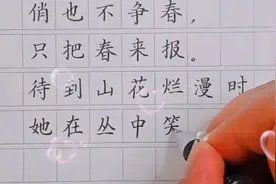 俏也不争春，
只把春来报。
待到山花烂漫时
她在丛中笑